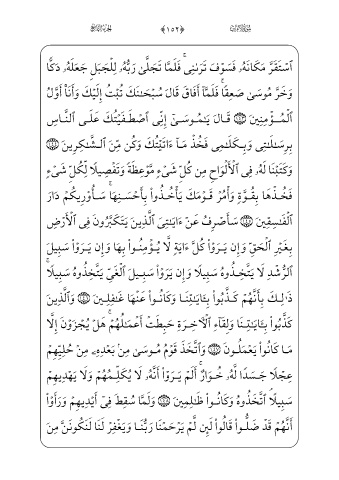 ﴿١٥٢﴾
ٱسْتَقَرَّ مَكَانَهُۥ فَسَوْفَ تَرَىٰنِى ۚ فَلَمَّا تَجَلَّىٰ رَبُّهُۥ لِلْجَبَلِ جَعَلَهُۥ دَكًّا
وَخَرَّ مُوسَىٰ صَعِقًا ۚ فَلَمَّآ أَفَاقَ قَالَ سُبْحَٰنَكَ تُبْتُ إِلَيْكَ وَأَنَا۠ أَوَّلُ
ٱلْمُؤْمِنِينَ ﴿١٤٣﴾ قَالَ يَٰمُوسَىٰٓ إِنِّى ٱصْطَفَيْتُكَ عَلَى ٱلنَّاسِ
بِرِسَٰلَٰتِى وَبِكَلَٰمِى فَخُذْ مَآ ءَاتَيْتُكَ وَكُن مِّنَ ٱلشَّٰكِرِينَ ﴿١٤٤﴾
وَكَتَبْنَا لَهُۥ فِى ٱلْأَلْوَاحِ مِن كُلِّ شَىْءٍ مَّوْعِظَةً وَتَفْصِيلًا لِّكُلِّ شَىْءٍ
فَخُذْهَا بِقُوَّةٍ وَأْمُرْ قَوْمَكَ يَأْخُذُوا۟ بِأَحْسَنِهَا ۚ سَأُو۟رِيكُمْ دَارَ
ٱلْفَٰسِقِينَ ﴿١٤٥﴾ سَأَصْرِفُ عَنْ ءَايَٰتِىَ ٱلَّذِينَ يَتَكَبَّرُونَ فِى ٱلْأَرْضِ
بِغَيْرِ ٱلْحَقِّ وَإِن يَرَوْا۟ كُلَّ ءَايَةٍ لَّا يُؤْمِنُوا۟ بِهَا وَإِن يَرَوْا۟ سَبِيلَ
ٱلرُّشْدِ لَا يَتَّخِذُوهُ سَبِيلًا وَإِن يَرَوْا۟ سَبِيلَ ٱلْغَىِّ يَتَّخِذُوهُ سَبِيلًا ۚ
ذَٰلِكَ بِأَنَّهُمْ كَذَّبُوا۟ بِـَٔايَٰتِنَا وَكَانُوا۟ عَنْهَا غَٰفِلِينَ ﴿١٤٦﴾ وَٱلَّذِينَ
كَذَّبُوا۟ بِـَٔايَٰتِنَا وَلِقَآءِ ٱلْـَٔاخِرَةِ حَبِطَتْ أَعْمَٰلُهُمْ ۚ هَلْ يُجْزَوْنَ إِلَّا
مَا كَانُوا۟ يَعْمَلُونَ ﴿١٤٧﴾ وَٱتَّخَذَ قَوْمُ مُوسَىٰ مِنۢ بَعْدِهِۦ مِنْ حُلِيِّهِمْ
عِجْلًا جَسَدًا لَّهُۥ خُوَارٌ ۚ أَلَمْ يَرَوْا۟ أَنَّهُۥ لَا يُكَلِّمُهُمْ وَلَا يَهْدِيهِمْ
سَبِيلًا ۘ ٱتَّخَذُوهُ وَكَانُوا۟ ظَٰلِمِينَ ﴿١٤٨﴾ وَلَمَّا سُقِطَ فِىٓ أَيْدِيهِمْ وَرَأَوْا۟
أَنَّهُمْ قَدْ ضَلُّوا۟ قَالُوا۟ لَئِن لَّمْ يَرْحَمْنَا رَبُّنَا وَيَغْفِرْ لَنَا لَنَكُونَنَّ مِنَ